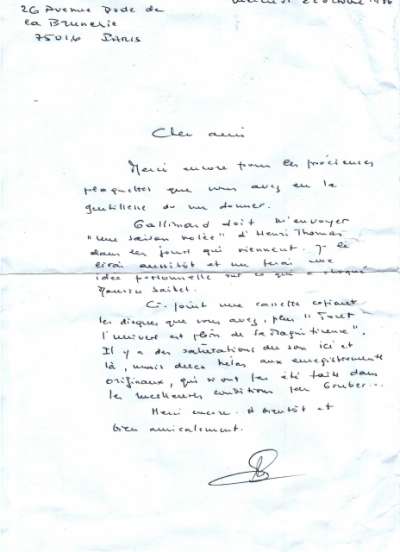 26 Avenue Dode de
la Brunerie
75016 PARIS
Cher ami
Merci encore pour les précieuses
plaquettes que vous avez eu la
gentillesse de me donner.
Gallimard doit m'envoyer
"Une saison volée" d'Henri Thomas
dans les jours qui viennent. Je le
lirai aussitôt et me ferai une
idée personnelle sur ce qui a choqué
Maurice Saillet.
Ci-joint une cassette copiant
les disques que vous avez, plus "Tout
l'univers est plein de sa magnificence".
Il y a des saturations de son ici et
là, mais dues hélas aux enregistrements
originaux, qui n'ont pas été faits dans
les meilleures conditions par
Merci encore. A bientôt et
bien amicalement.